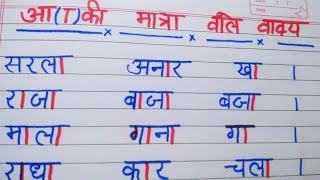 आ(ा)की मात्रा वाले वाक्य
सरला अनार खा ।
राजा बाजा बजा ।
माला गाना गा ।
राधा कार चला ।